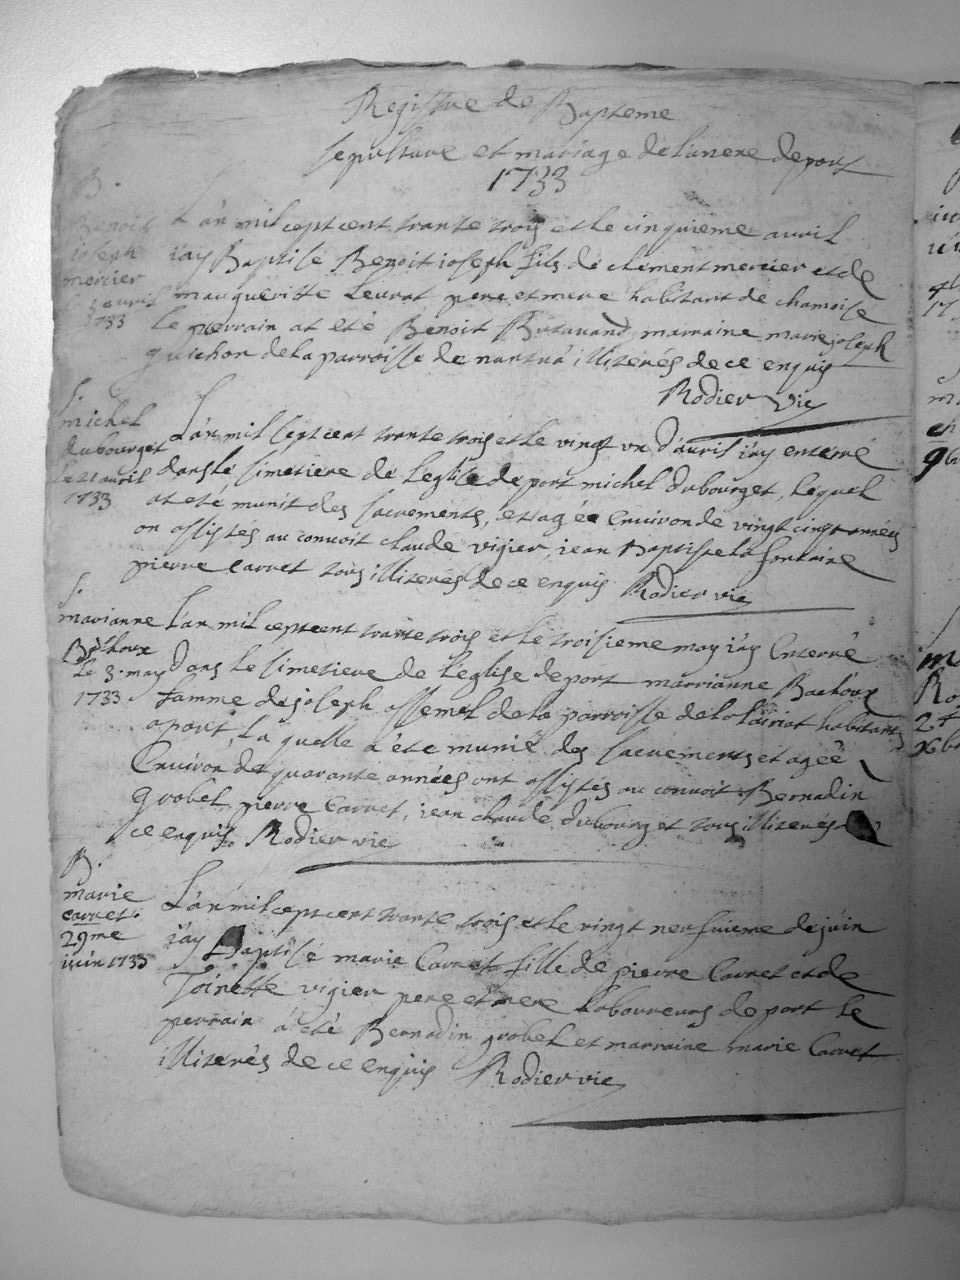 Registre de Bapteme
sepulture et mariage de l'annene de port
1733
B.
Benoit
joseph
mercier
le 5 avril
1733
L'an mil cept cent trante trois et le cinquieme avril
j'ay Baptisé Benoit joseph fils de clement mercier et de
margueritte Leurat pere et mere habitant de chamoise
le perrain at eté Benoit Butavand marraine marie joseph
guichon de la parroisse de nantua illiterés de ce enquis
Rodier vic
S.
michel
dubourget
le 21 avril
1733
L'an mil sept cent trante trois et le vingt un d'avril j'ay enterré
dans le simetiere de l'eglise de port michel dubourget, lequel
at eté munit des sacrements, et agée Environ de vingt cinq années
on assistés au convoit claude vigier, jean Baptiste la fontaine
pierre Carret tous illiterés de ce enquis Rodier vic
S.
marianne
Bachoux
le 3. may
1733
L'an mil cept cent trante trois et le troisieme may j'ay Enterré
Dans le simetiere de l'eglise de port marrianne Bachoux
famme de joseph assemel de la parroisse de habitant
a port, La quelle a été munie des sacrements et agée
Environ de quarante années ont assistés au convoit Bernadin
grobel, pierre Carret, jean claude dubourget tous illiterés
ce enquis Rodier vic
B.
marie
carret
29me
juin 1733
L'an mil cept cent trante trois et le vingt neufuieme de juin
j'ay Baptisé marie Carret fille de pierre Carret et de
Toinette vigier pere et mere Laboureurs de port le
perrain a été Bernadin grobel et marraine marie Carret
illiterés de ce enquis Rodier vic